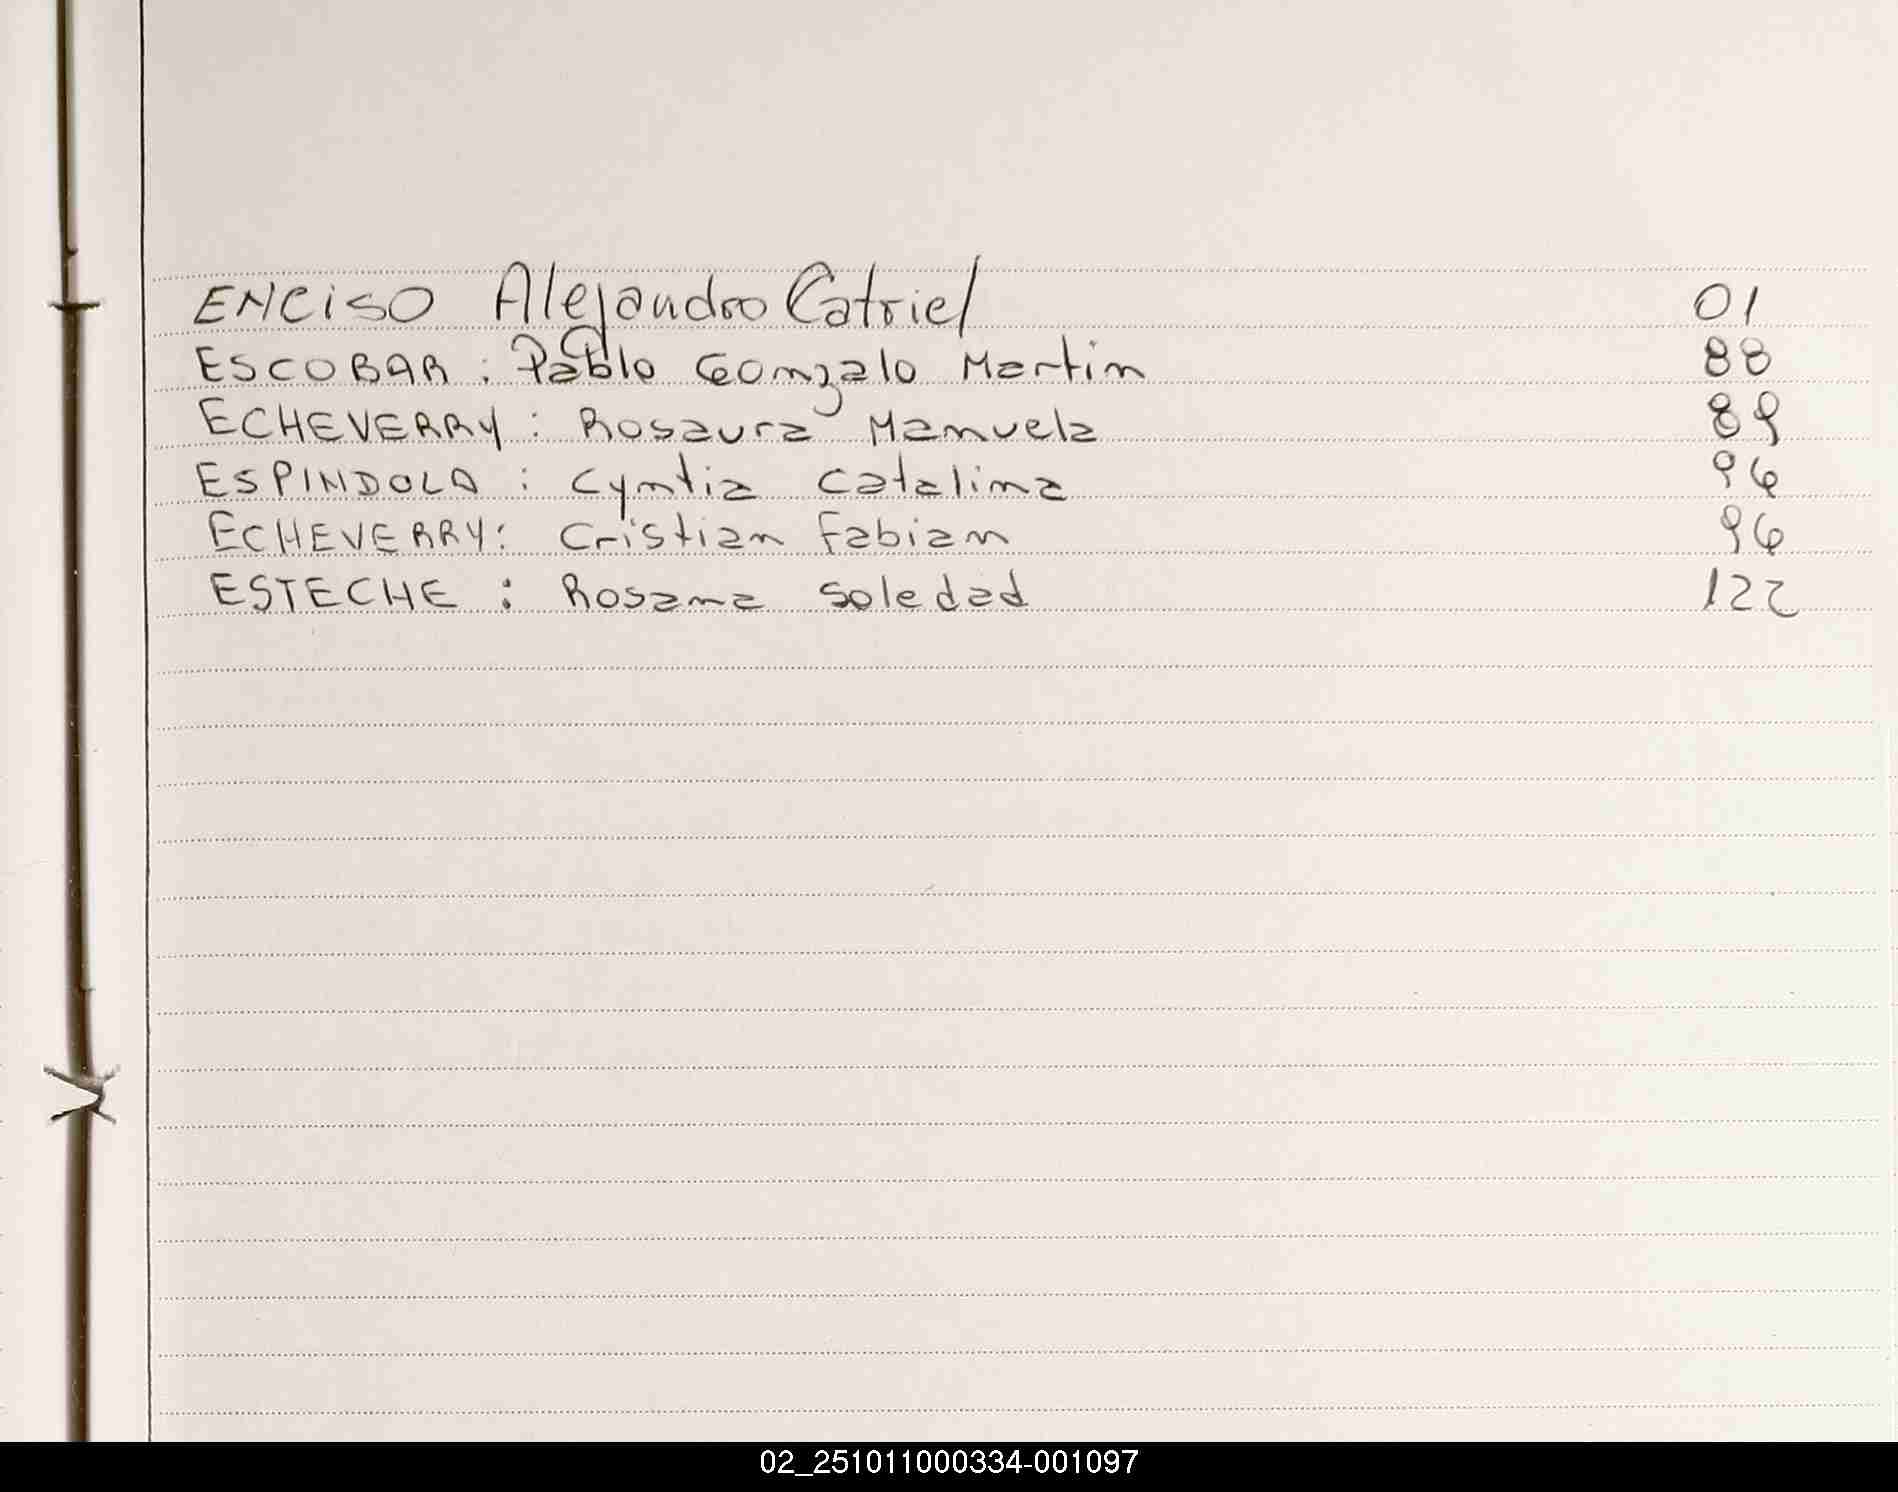 ENCISO Alejandro Catriel 01
ESCOBAR : Pablo Gonzalo Martin 88
ECHEVERRY : Rosaura Manuela 89
ESPINDOLA : Cyntia Catalina 96
ECHEVERRY : Cristian Fabian 96
ESTECHE : Rosana Soledad 122
02_251011000334-001097